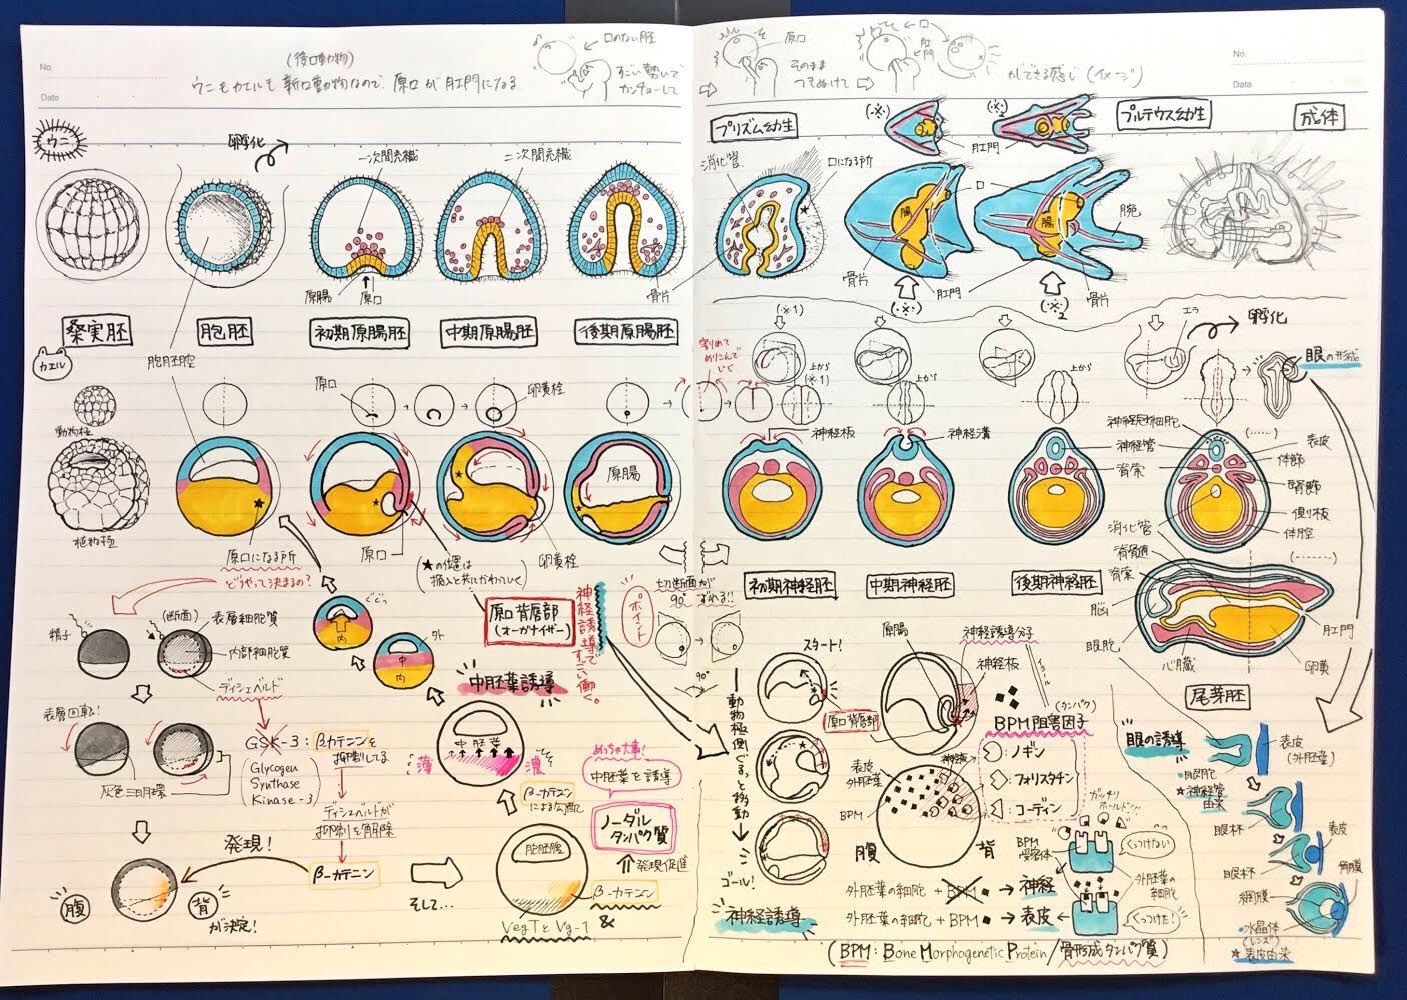 No.
Date
(後口動物)
ウニもカエルも新口動物なので、原口が肛門になる
口のない胚
すごい勢いで
カンチョーして
原口
そのまま
つきぬけて
口
肛門
ができる感じ(イメージ)
No.
Date
ウニ
孵化
一次間充織
二次間充織
原腸
原口
桑実胚
胞胚
初期原腸胚
中期原腸胚
後期原腸胚
胞胚腔
プリズム幼生
(・※・)
(・※2)
プルテウス幼生
成体
肛門
消化管
口になる所
骨片
腸
口
腸
腕
骨片
肛門
骨片
(・※・)
(・※2)
カエル
動物極
植物極
原口
卵黄栓
割りめて
めりこんで
いく
(※1)
上から
(※1)
上から
上から
エラ
孵化
眼の形成
原口になる所
原口
原腸
卵黄栓
(★の位置は
陥入と共にかわっていく)
神経板
神経溝
神経冠細胞
神経管
脊索
表皮
体節
腎節
側板
体腔
消化管
脊髄
脊索
脳
眼胞
心臓
肛門
卵黄
初期神経胚
中期神経胚
後期神経胚
尾芽胚
切断面が
90°ずれる!!
ポイント
90°
どうやって決まるの?
精子
(断面)
表層細胞質
内部細胞質
ディシェベルド
表層回転!
灰色三日月環
GSK-3:βカテニンを
抑制してる
(Glycogen
Synthase
Kinase-3)
ディシェベルドが
抑制を解除
β-カテニン
発現!
腹
背
が決定!
そして…
内
外
中
内
原口背唇部
(オーガナイザー)
神経誘導で
すごい働く。
中胚葉誘導
中胚葉
薄
濃
β-カテニン
による勾配で
めっちゃ大事!
中胚葉を誘導
ノーダル
タンパク質
発現促進
β-カテニン
&
VegTとVg-1
胞胚腔
スタート!
原口背唇部
動物極側ぐるっと移動
ゴール!
神経誘導
原腸
神経誘導分子
神経板
イコール
(タンパク)
BPM阻害因子
:ノギン
:フォリスタチン
:コーディン
表皮
外胚葉
神経
BPM
腹
背
ガッチリ
ホールド!!
BPM
受容体
くっつけない
外胚葉
の細胞
くっつけた!
外胚葉の細胞+BPM→神経
外胚葉の細胞+BPM→表皮
(BPM:Bone Morphogenetic Protein/骨形成タンパク質)
眼の誘導
表皮
(外胚葉)
眼胞
★神経管
由来
眼杯
表皮
眼杯
角膜
網膜
水晶体
(レンズ)
★表皮由来